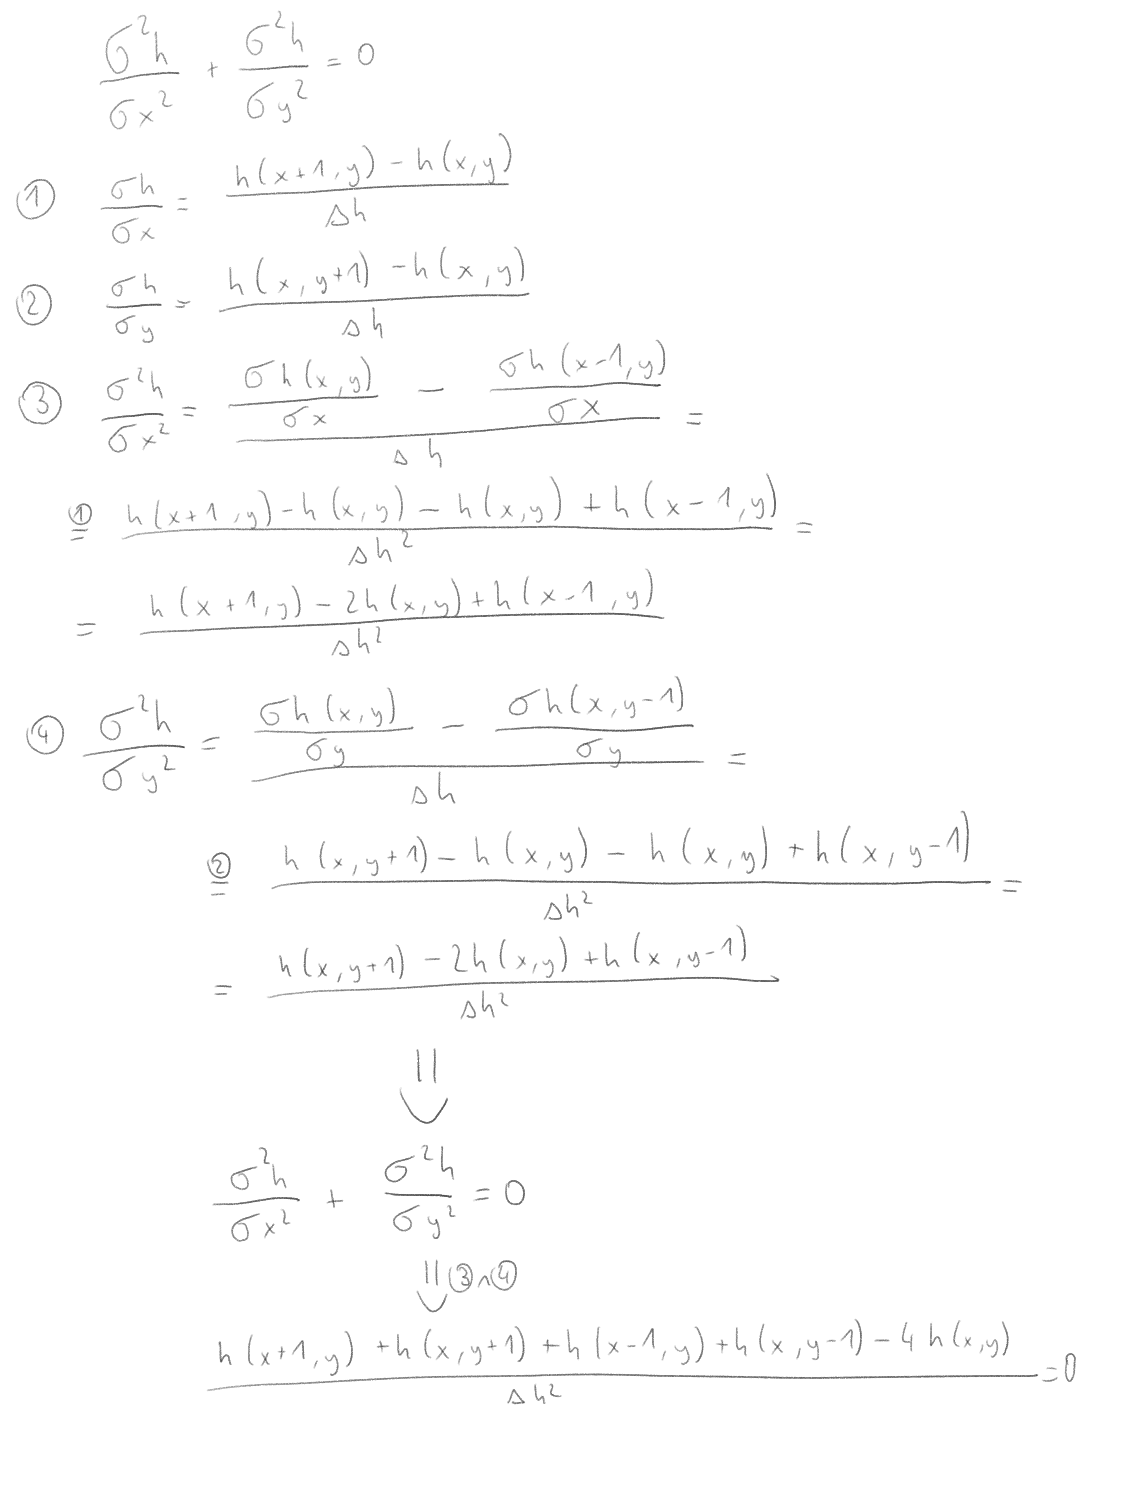 σ²h/σx² + σ²h/σy² = 0
① σh/σx = (h(x+1,y) - h(x,y))/Δh
② σh/σy = (h(x,y+1) - h(x,y))/Δh
③ σ²h/σx² = (σh(x,y)/σx - σh(x-1,y)/σx)/Δh =
①= (h(x+1,y) - h(x,y) - h(x,y) + h(x-1,y))/Δh² =
= (h(x+1,y) - 2h(x,y) + h(x-1,y))/Δh²
④ σ²h/σy² = (σh(x,y)/σy - σh(x,y-1)/σy)/Δh =
②= (h(x,y+1) - h(x,y) - h(x,y) + h(x,y-1))/Δh² =
= (h(x,y+1) - 2h(x,y) + h(x,y-1))/Δh²
⇓
σ²h/σx² + σ²h/σy² = 0
⇓ ③∧④
(h(x+1,y) + h(x,y+1) + h(x-1,y) + h(x,y-1) - 4h(x,y))/Δh² = 0